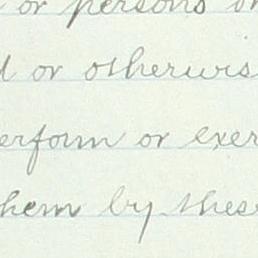 or persons
d or otherwis
erform or exer
hem by these